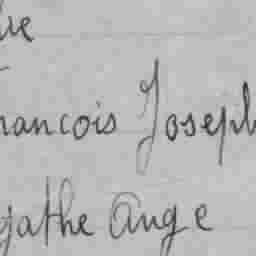 ue
rancois Joseph
gathe Ange